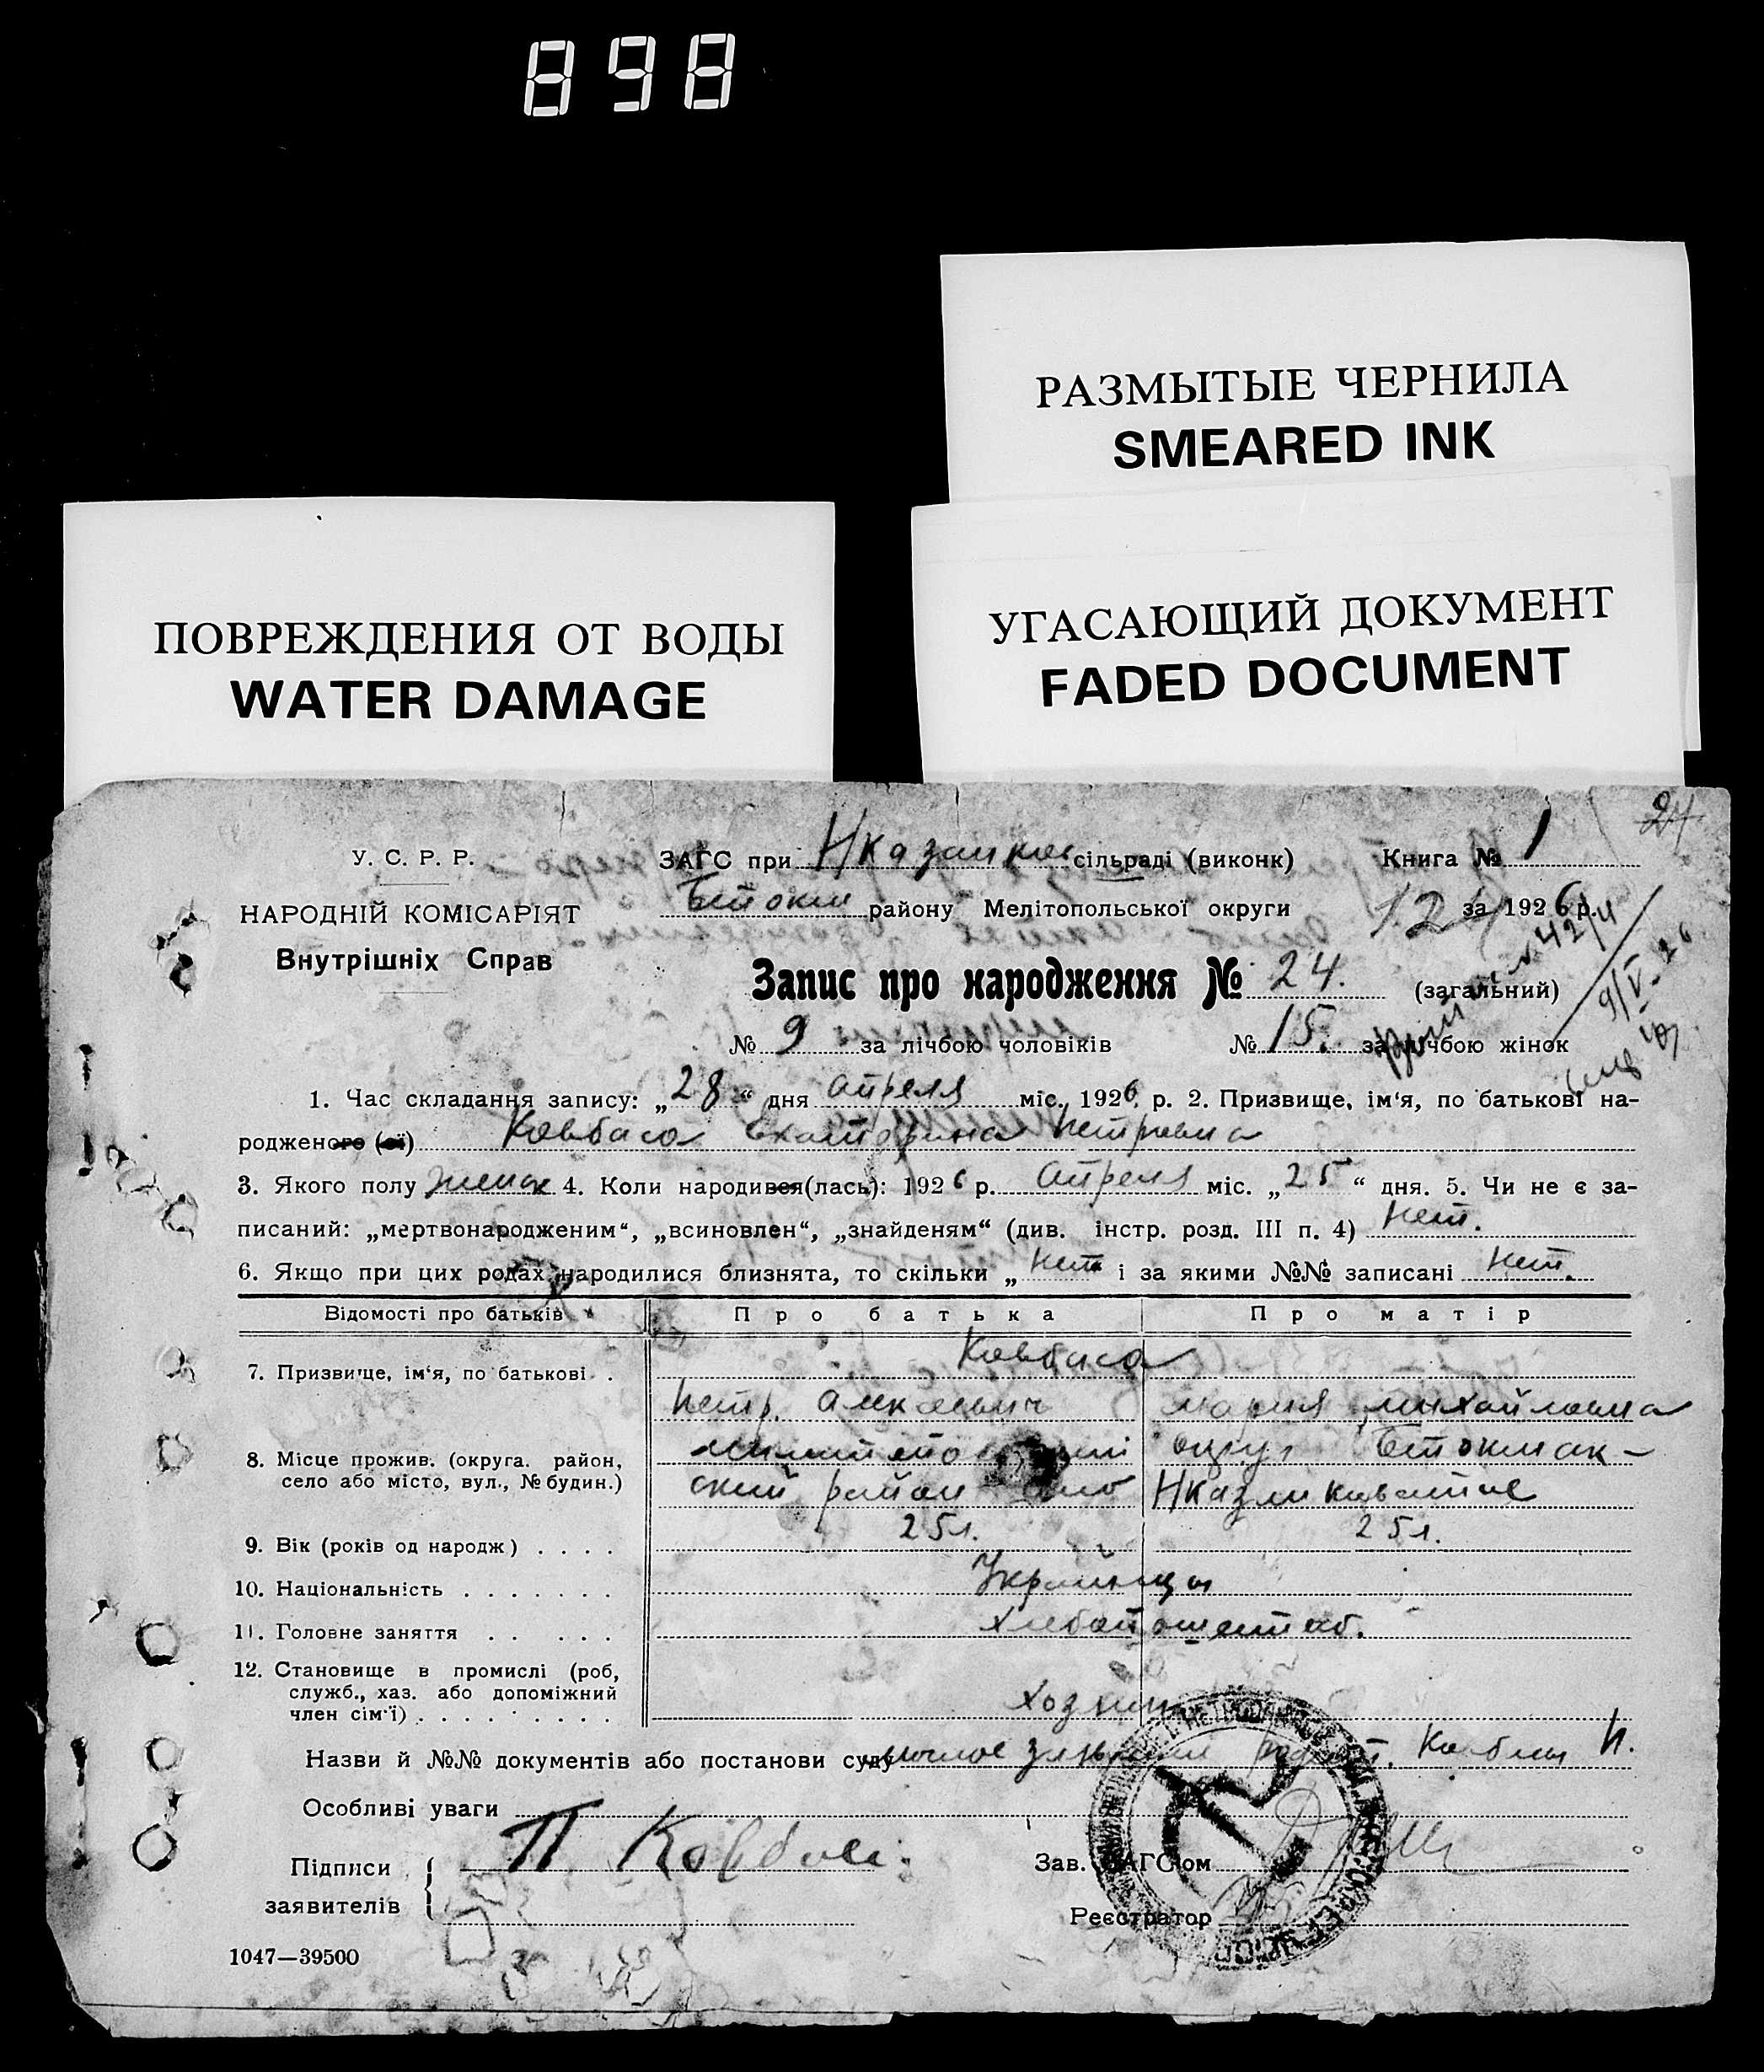 898
РАЗМЫТЫЕ ЧЕРНИЛА
SMEARED INK
УГАСАЮЩИЙ ДОКУМЕНТ
FADED DOCUMENT
ПОВРЕЖДЕНИЯ ОТ ВОДЫ
WATER DAMAGE
24
У. С. Р. Р.
НАРОДНІЙ КОМІСАРІЯТ
Внутрішніх Справ
ЗАГС при сільраді (виконк) Книга № 1
району Мелітопольської округи за 1926 р.
Запис про народження № 24. (загальний)
№ 9 за лічбою чоловіків № 15. за лічбою жінок
1. Час складання запису: „28“ дня апреля міс. 1926 р. 2. Призвище, ім‘я, по батькові на-
родженого (ої) Ковбаса Екатерина Петровна
3. Якого полу женск 4. Коли народився (лась): 1926 р. Апреля міс. „25“ дня. 5. Чи не є за-
писаний: „мертвонародженим“, „всиновлен“, „знайденям“ (див. інстр. розд. III п. 4) Нет.
6. Якщо при цих родах народилися близнята, то скільки „Нет і за якими №№ записані Нет.
Відомості про батьків Про батька Про матір
7. Призвище, ім‘я, по батькові . Ковбаса
Петр. Мария Михайловна
8. Місце прожив. (округа. район,
село або місто, вул., № будин.)
ский район
9. Вік (років од народж) . . . . 25 л. 25 л.
10. Національність . . . . . . . Украинцы
11. Головне заняття . . . . . .
12. Становище в промислі (роб,
служб., хаз. або допоміжний
член сім‘ї) . . . . . . . . .
Назви й №№ документів або постанови суду
Особливі уваги
Підписи П Ковбаса
заявителів
Зав. ЗАГС‘ом
Реєстратор
1047—39500